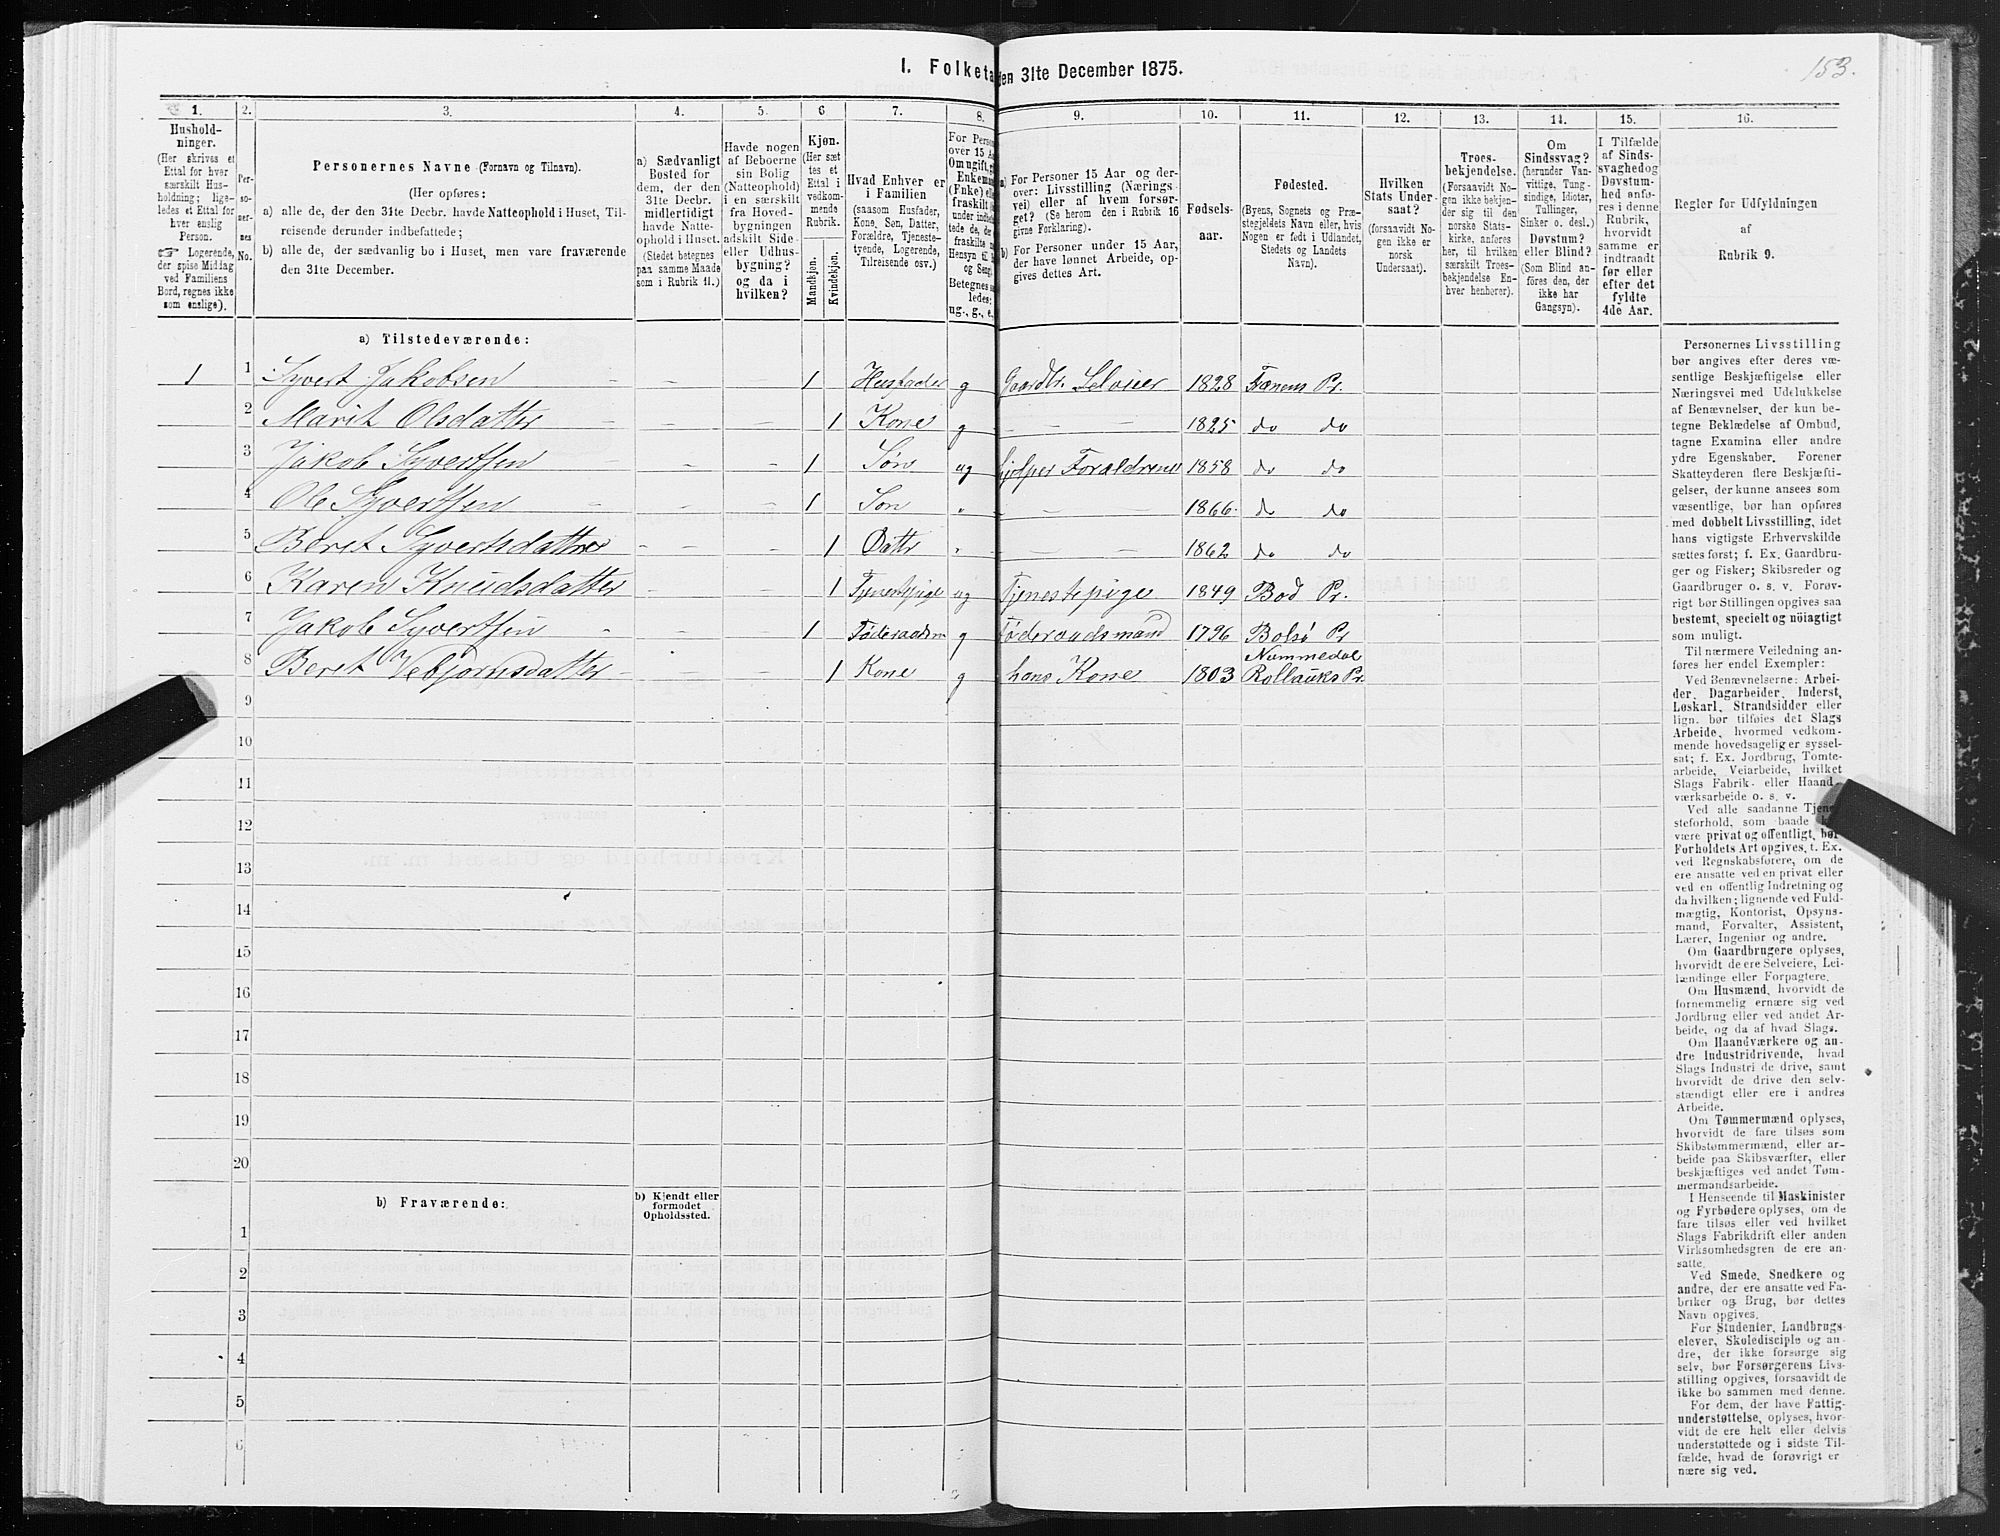 153.
I. Folketa den 31te December 1875.
1. 2. 3. 4. 5. 6. 7. 8. 9. 10. 11. 12. 13. 14. 15. 16.
Hushold-
ninger.
(Her skrives et
Ettal for hver
særskilt Hus-
holdning; lige-
ledes et Ettal for
hver enslig
Person.
☞ Logerende,
der spise Middag
ved Familiens
Bord, regnes ikke
som enslige).
Per-
so-
ner-
nes
No.
Personernes Navne (Fornavn og Tilnavn).
(Her opføres:
a) alle de, der den 31te Decbr. havde Natteophold i Huset, Til-
reisende derunder indbefattede;
b) alle de, der sædvanlig bo i Huset, men vare fraværende
den 31te December.
a) Sædvanligt
Bosted for
dem, der den
31te Decbr.
midlertidigt
havde Natte-
ophold i Huset.
(Stedet betegnes
paa samme Maade
som i Rubrik 11.)
Havde nogen
af Beboerne
sin Bolig
(Natteophold)
i en særskilt
fra Hoved-
bygningen
adskilt Side-
eller Udhus-
bygning?
og da i
hvilken?
Kjøn.
(Her sæt-
tes et
Ettal i
vedkom-
mende
Rubrik.
Mandkjøn.
Kvindekjøn.
Hvad Enhver er
i Familien
(saasom Husfader,
Kone, Søn, Datter,
Forældre, Tjeneste-
tyende, Logerende,
Tilreisende osv.)
For Perso
over 15 Aa
Om ugift, g
Enkema
(Enke) e
fraskilt
under indb
tede de, de
fraskilte
Hensyn til
og Seng
Betegnes s
ledes:
ug., g., e.,
a) For Personer 15 Aar og der-
over: Livsstilling (Nærings-
vei) eller af hvem forsør-
get? (Se herom den i Rubrik 16
givne Forklaring).
b) For Personer under 15 Aar,
der have lønnet Arbeide, op-
gives dettes Art.
Fødsels-
aar.
Fødested.
(Byens, Sognets og Præ-
stegjeldets Navn eller, hvis
Nogen er født i Udlandet,
Stedets og Landets
Navn).
Hvilken
Stats Under-
saat?
(forsaavidt No-
gen ikke er
norsk
Undersaat).
Troes-
bekjendelse.
(Forsaavidt No-
gen ikke bekjen-
der sig til den
norske Stats-
kirke, anføres
her, til hvilken
særskilt Troes-
bekjendelse En-
hver henhører).
Om
Sindssvag?
(herunder Van-
vittige, Tung-
sindige, Idioter,
Tullinger,
Sinker o. desl.)
Døvstum?
eller Blind?
(Som Blind an-
føres den, der
ikke har
Gangsyn).
I Tilfælde
af Sinds-
svaghed og
Døvstum-
hed anfø-
res i denne
Rubrik,
hvorvidt
samme er
indtraadt
før eller
efter det
fyldte
4de Aar.
Regler for Udfyldningen
af
Rubrik 9.
a) Tilstedeværende:
1 1 Syvert Jakobsen - - 1 Husfader g Gaardbr. Selveier 1828 Frænens Pr.
2 Marit Olsdatter - - - 1 Kone g - - - 1825 do do
3 Jakob Syvertsen - - - 1 Søn ug Hjelper Forældrene 1858 do do
4 Ole Syvertsen - - - 1 Søn " - - 1866. do do
5 Beret Syvertsdatter - - - 1 Dattr " - - 1862 do do
6 Karen Knudsdatter - - 1 Tjenestpige ug Tjenestepige 1849 Bod Pr.
7 Jakob Syvertsen - - - 1 Føderaadsm g Føderaadsmand 1796 Bolsø Pr
8 Beret Vebjørnsdatter - - - 1 Kone g hans Kone 1803 Nummedal
Rollauks Pr.
9
10
11
12
13
14
15
16
17
18
19
20
b) Fraværende:
b) Kjendt eller
formodet
Opholdssted.
1
2
3
4
5
6
Personernes Livsstilling
bør angives efter deres væ-
sentlige Beskjæftigelse eller
Næringsvei med Udelukkelse
af Benævnelser, der kun be-
tegne Beklædelse af Ombud,
tagne Examina eller andre
ydre Egenskaber. Forener
Skatteyderen flere Beskjæfti-
gelser, der kunne ansees som
væsentlige, bør han opføres
med dobbelt Livsstilling, idet
hans vigtigste Erhvervskilde
sættes først; f. Ex. Gaardbru-
ger og Fisker; Skibsreder og
Gaardbruger o. s. v. Forøv-
rigt bør Stillingen opgives saa
bestemt, specielt og nøiagtigt
som muligt.
Til nærmere Veiledning an-
føres her endel Exempler:
Ved Benævnelserne: Arbei-
der, Dagarbeider, Inderst,
Løskarl, Strandsidder eller
lign. bør tilføies det Slags
Arbeide, hvormed vedkom-
mende hovedsagelig er syssel-
sat; f. Ex. Jordbrug, Tomte-
arbeide, Veiarbeide, hvilket
Slags Fabrik- eller Haand-
værksarbeide o. s. v.
Ved alle saadanne Tjene-
steforhold, som baade k
være privat og offentligt, bør
Forholdets Art opgives, t. Ex.
ved Regnskabsførere, om de
ere ansatte ved en privat eller
ved en offentlig Indretning og
da hvilken; lignende ved Fuld-
mægtig, Kontorist, Opsyns-
mand, Forvalter, Assistent,
Lærer, Ingeniør og andre.
Om Gaardbrugere oplyses,
hvorvidt de ere Selveiere, Lei-
lændinge eller Forpagtere.
Om Husmænd, hvorvidt de
fornemmelig ernære sig ved
Jordbrug eller ved andet Ar-
beide, og da af hvad Slags.
Om Haandværkere og an-
dre Industridrivende, hvad
Slags Industri de drive, samt
hvorvidt de drive den selv-
stændigt eller ere i andres
Arbeide.
Om Tømmermænd oplyses,
hvorvidt de fare tilsøs som
Skibstømmermænd, eller ar-
beide paa Skibsværfter, eller
beskjæftiges ved andet Tøm-
mermandsarbeide.
I Henseende til Maskinister
og Fyrbødere oplyses, om de
fare tilsøs eller ved hvilket
Slags Fabrikdrift eller anden
Virksomhedsgren de ere an-
satte.
Ved Smede, Snedkere og
andre, der ere ansatte ved Fa-
briker og Brug, bør dettes
Navn opgives.
For Studenter, Landbrugs-
elever, Skoledisciple og an-
dre, der ikke forsørge sig
selv, bør Forsørgerens Livs-
stilling opgives, forsaavidt de
ikke bo sammen med denne.
For dem, der have Fattig-
understøttelse, oplyses, hvor-
vidt de ere helt eller delvis
understøttede og i sidste Til-
fælde, hvad de forøvrigt er
nære sig ved.